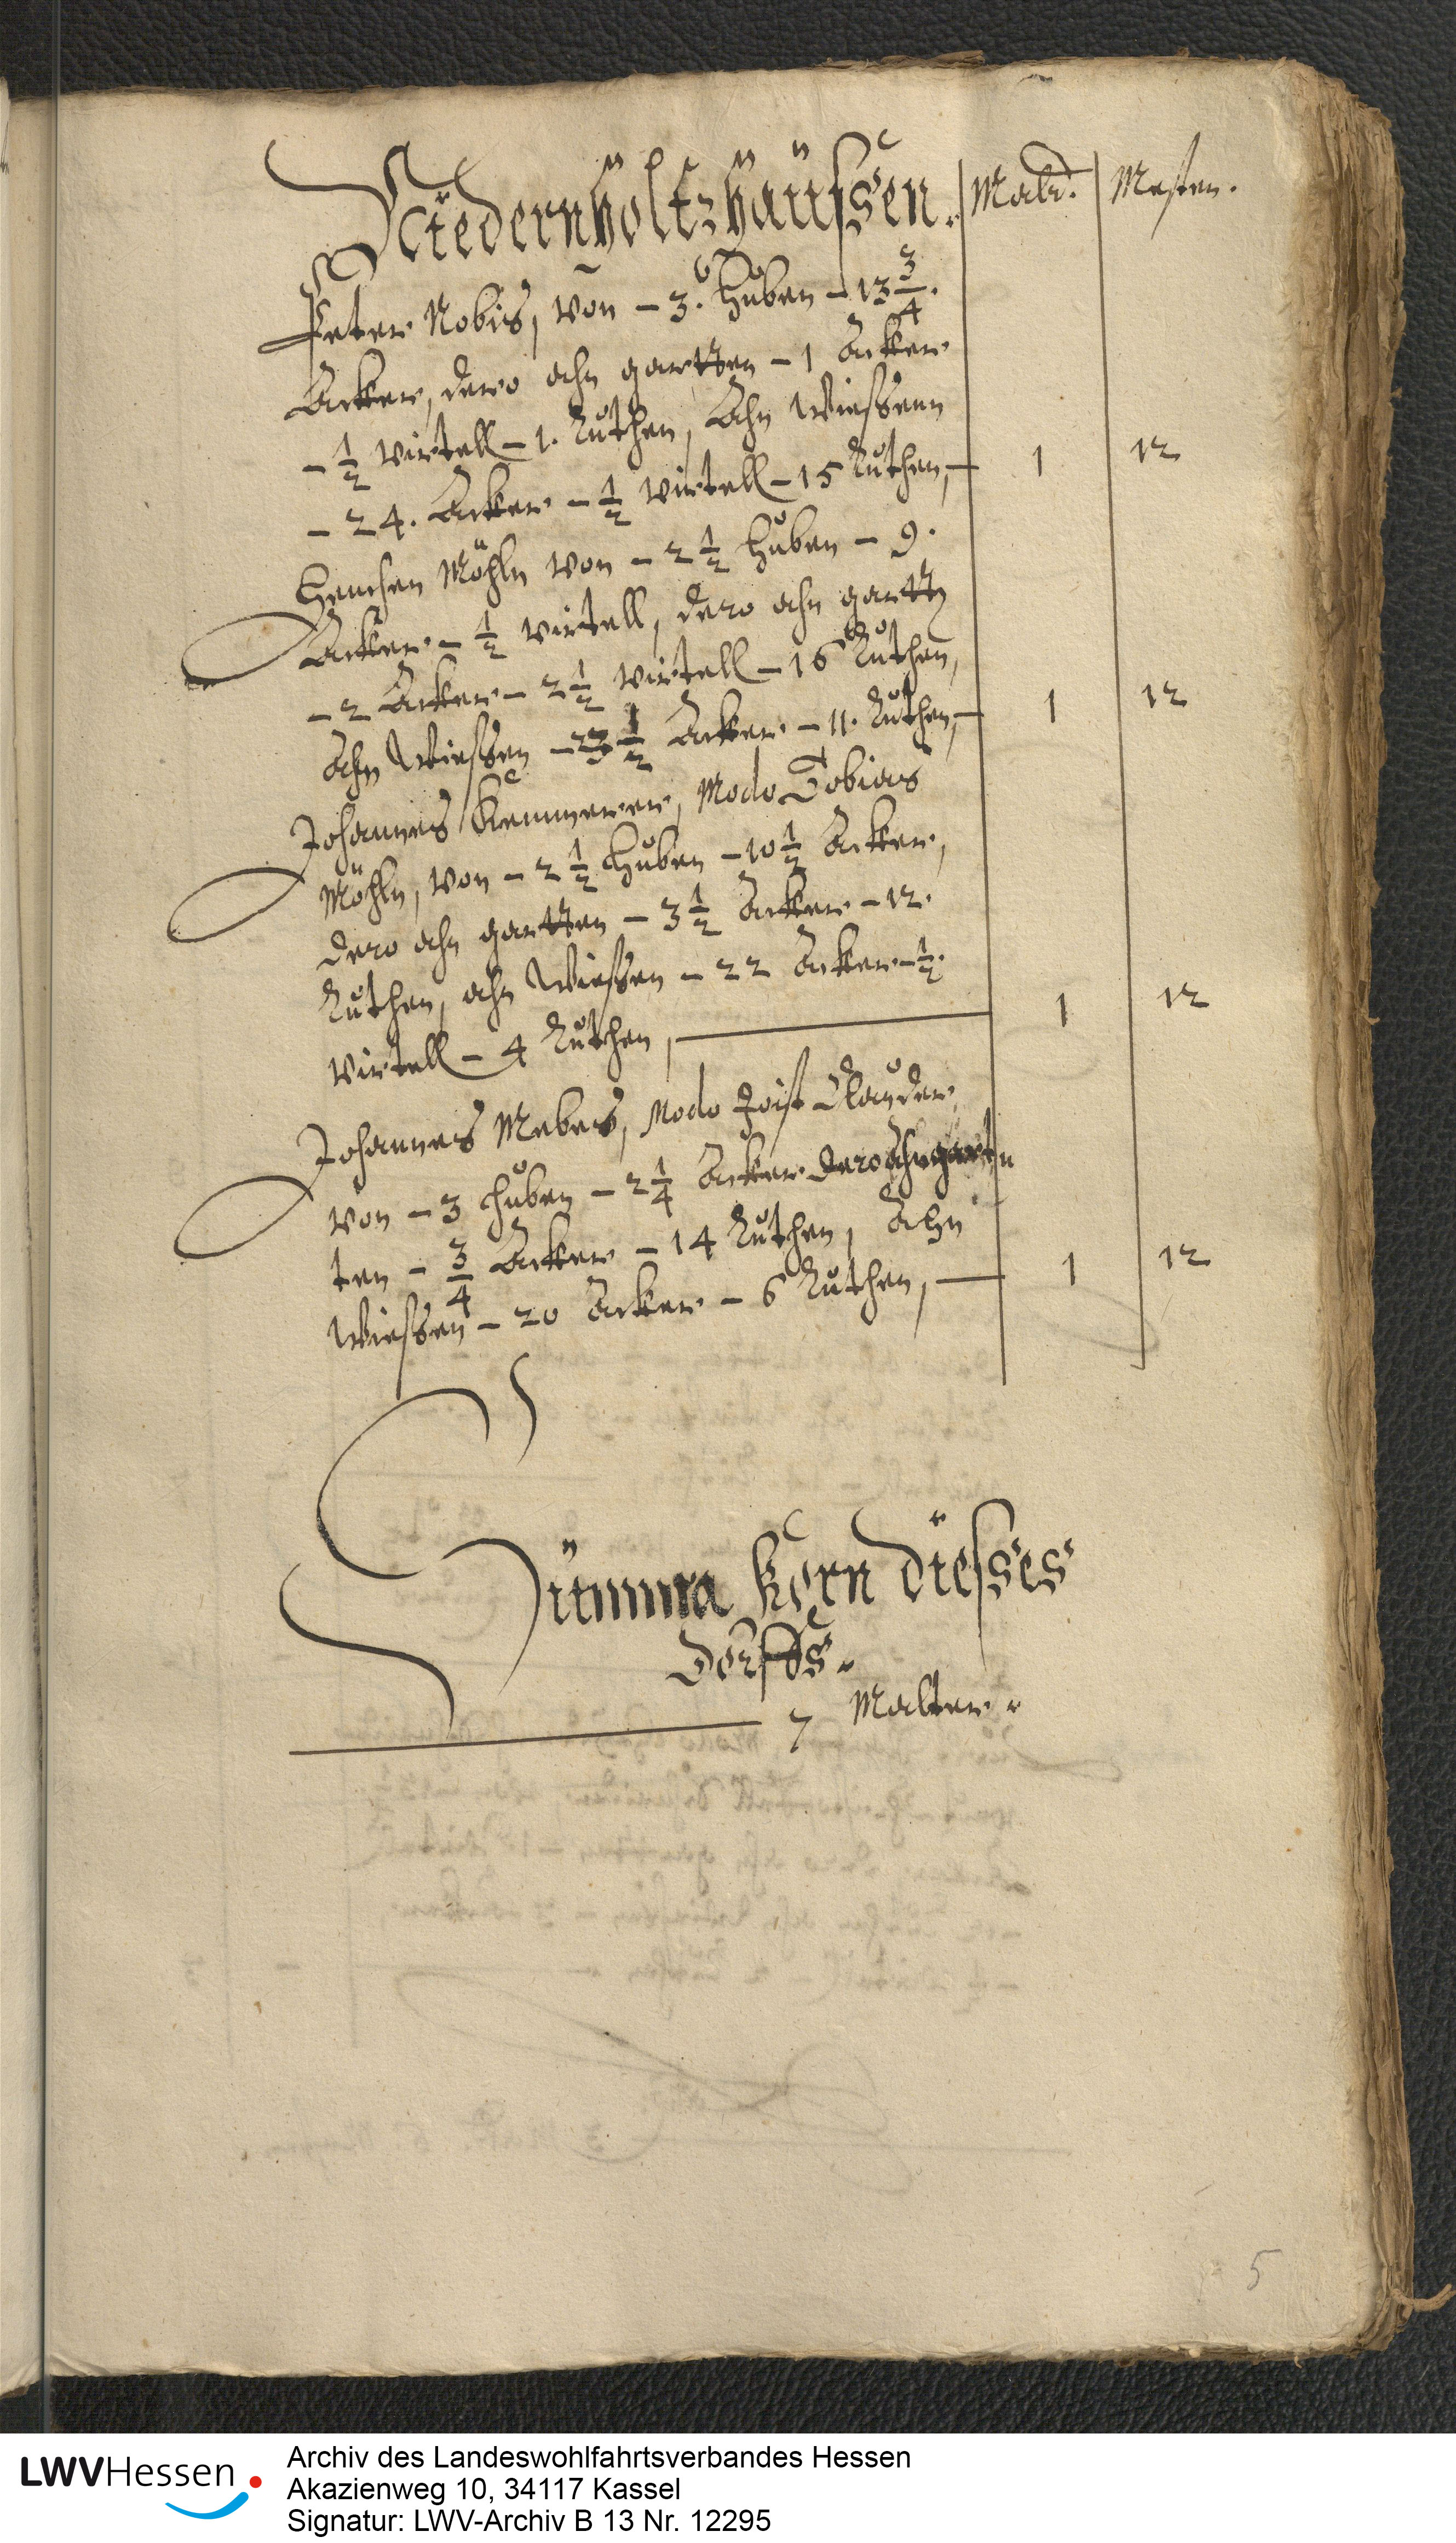 Niedernholtzhaußen. Maltr. Mesten.
Peter Nobis, von - 3. huben - 13 3/4.
Acker, dero ahn gartten - 1 Acker
- 1/2 virtell - 1. Ruthen, Ahn Wießenn
- 24. Acker - 1/2 virtell - 15 Ruthen, - 1 12
Henchen Möhln von - 2 1/2 huben - 9.
Acker - 1/2 virtell, dero ahn gartten
- 2 Acker - 2 1/2 virtell - 16 Ruthen,
Ahn Wießen - 23 1/2 Acker - 11. Ruthen, - 1 12
Johannes Kemmerer, Modo Tobias
Möhln, von - 2 1/2 huben - 10 1/2 Acker,
dero ahn gartten - 3 1/2 Acker - 12.
Ruthen, ahn Wießen - 22 Acker - 1/2.
virtell - 4 Ruthen, - 1 12
Johannes Mebes, Modo Joist Clauder,
von - 3 huben - 2 1/4 Acker dero ahn
ten - 3/4 Acker - 14 Ruthen, Ahn
Wießen - 20 Acker - 6 Ruthen, - 1 12
Summa Korn dießes
dorffs.
7 Malter.
5
LWVHessen
Archiv des Landeswohlfahrtsverbandes Hessen
Akazienweg 10, 34117 Kassel
Signatur: LWV-Archiv B 13 Nr. 12295